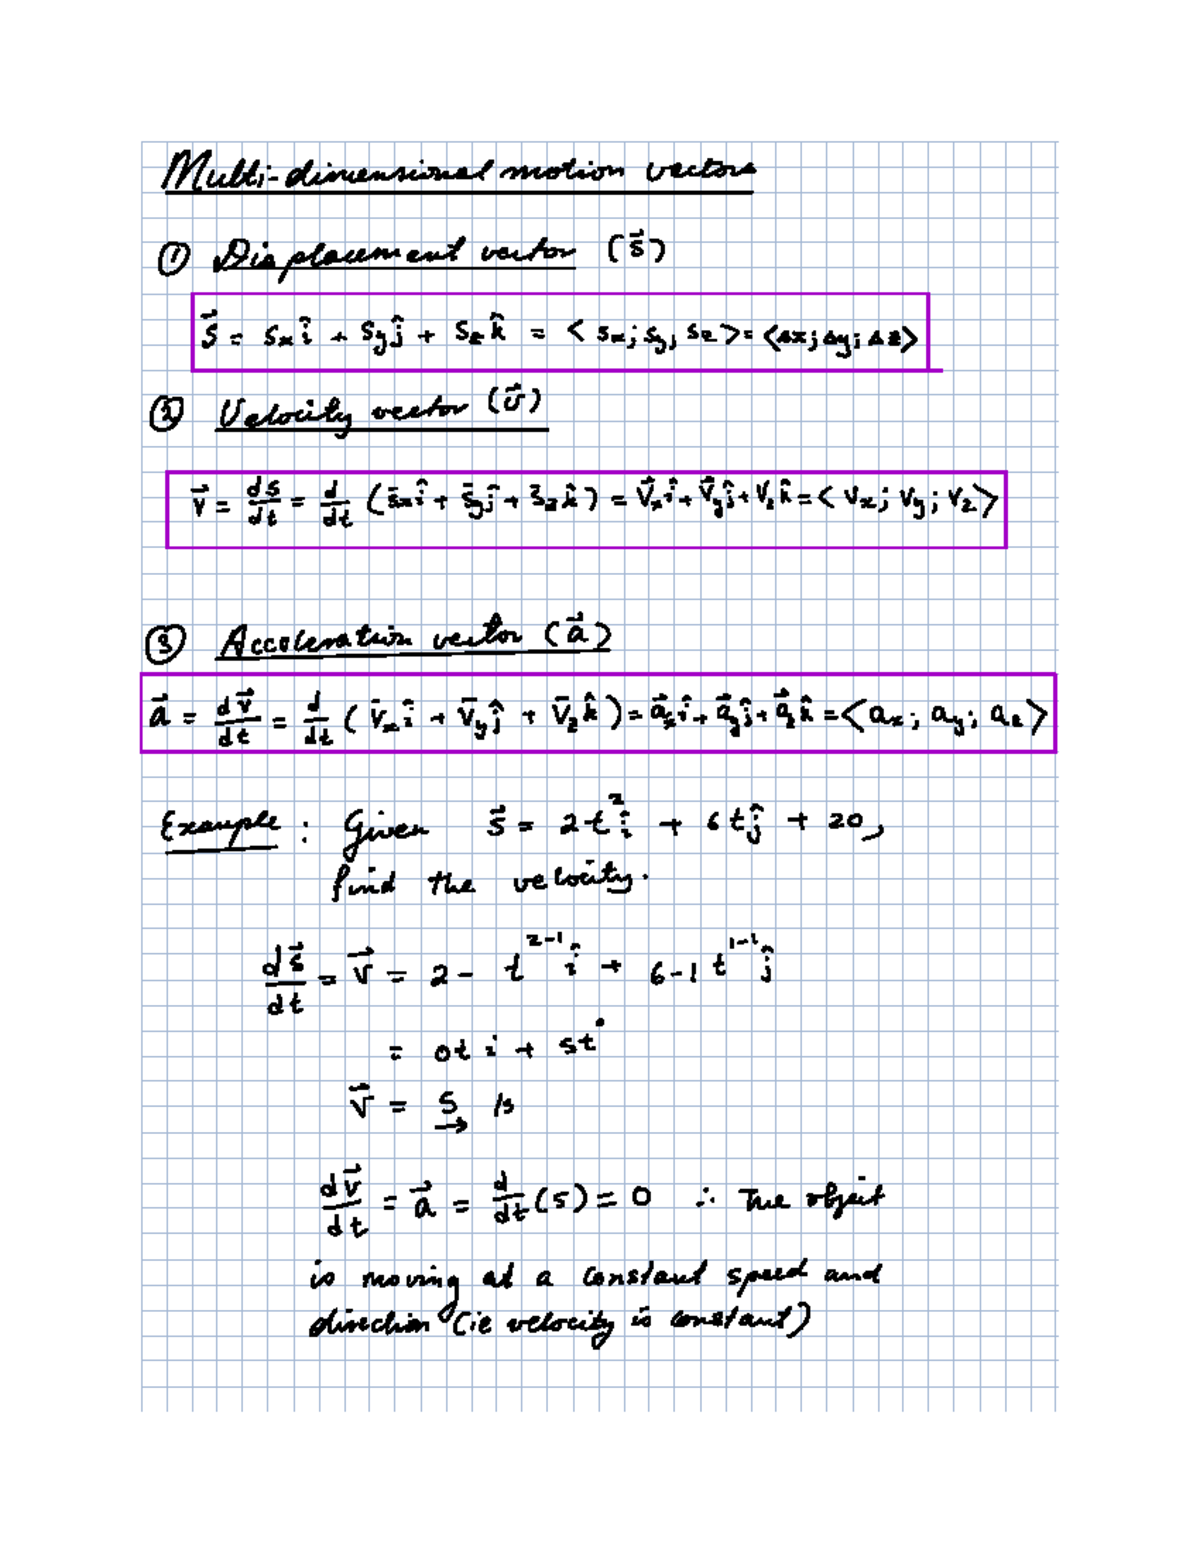 Multi-dimensional motion vectors
① Displacement vector (s⃗)
s⃗ = sₓ î + s_y ĵ + s_z k̂ = < sₓ; s_y; s_z > = <Δx; Δy; Δz>
② Velocity vector (v⃗)
v⃗ = ds/dt = d/dt (s̄ₓ î + s̄_y ĵ + s̄_z k̂) = v⃗ₓ î + v⃗_y ĵ + v_z k̂ = < vₓ; v_y; v_z >
③ Acceleration vector (a⃗)
a⃗ = dv⃗/dt = d/dt ( v̄ₓ î + v̄_y ĵ + v̄_z k̂ ) = a⃗ₓ î + a⃗_y ĵ + a⃗_z k̂ = < aₓ; a_y; a_z >
Example : Given s⃗ = 2t² î + 6t ĵ + 20,
find the velocity.
ds⃗/dt = v⃗ = 2 - t^(2-1) î + 6-1 t^(1-1) ĵ
= 0t i + 5t°
v⃗ = 5 /s
→
dv⃗/dt = a⃗ = d/dt (5) = 0 ∴ The object
is moving at a constant speed and
direction (ie velocity is constant)